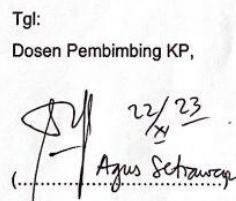 Tgl:
Dosen Pembimbing KP,
22/XI 23
(Agus Setiawan